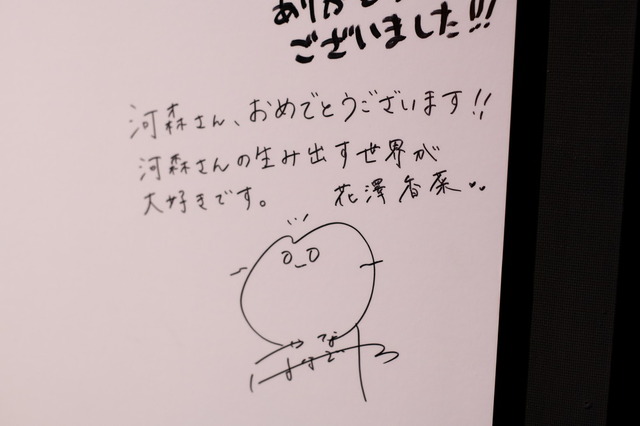 ありが
ございました!!
河森さん、おめでとうございます!!
河森さんの生み出す世界が
大好きです。 花澤香菜